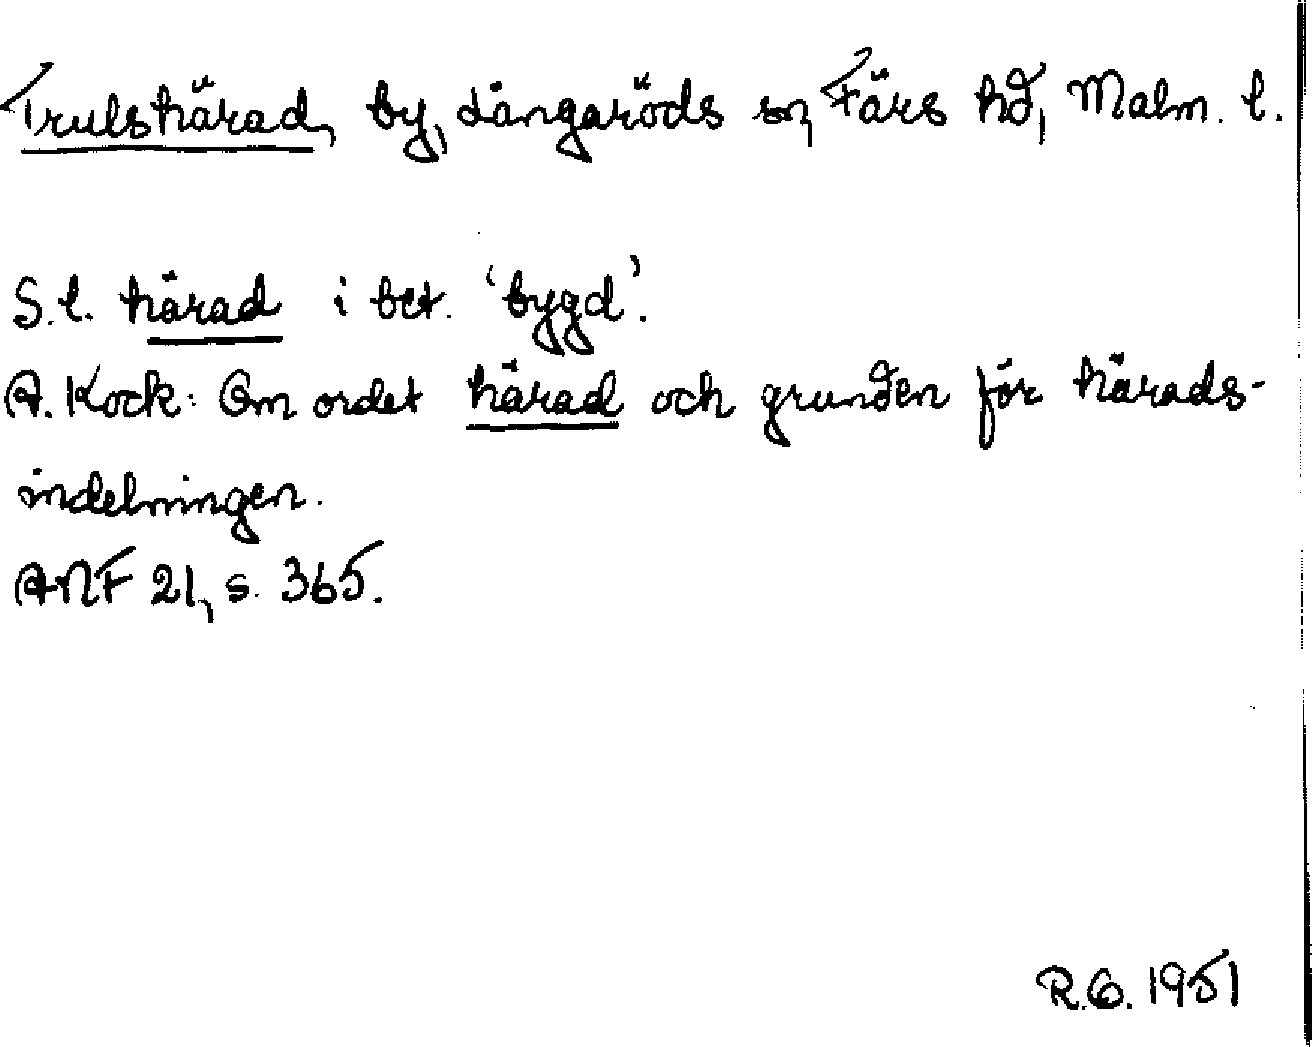 Trulshärad, by, Långaröds sn, Färs hd, Malm. l.
S.l. härad i bet. 'bygd'.
A. Kock: Om ordet härad och grunden för härads-
indelningen.
ANF 21, s. 365.
R.G. 1951